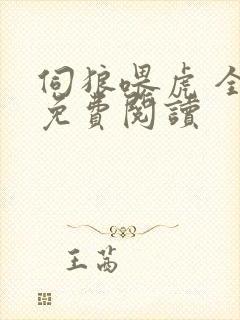 伺狼喂虎 全
免費閱讀
王茜